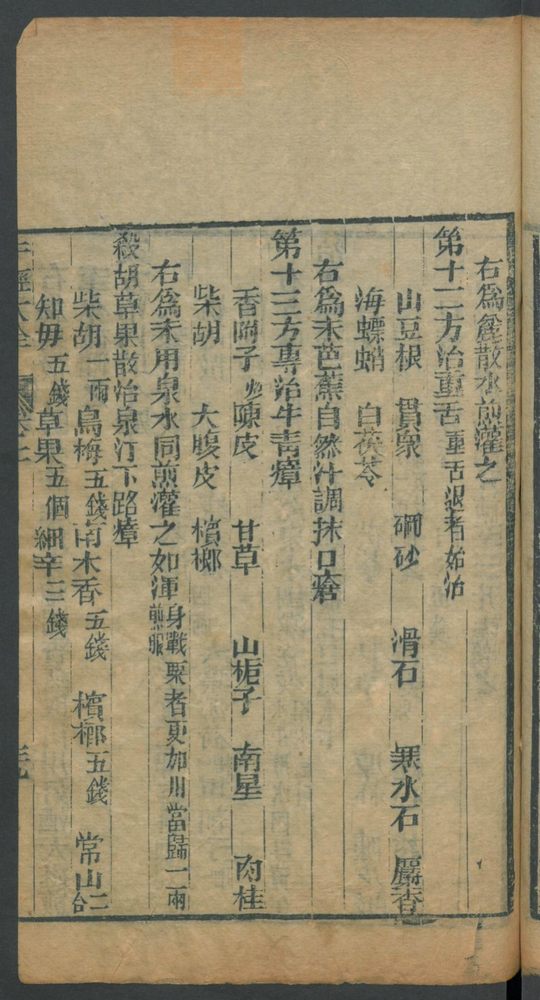 右爲麄散水煎灌之
第十二方治重舌重舌退者如治
山豆根 貫衆 硇砂 滑石 寒水石 麝香
海螵蛸 白茯苓
右爲末芭蕉自然汁調抹口瘡
第十三方專治牛青瘴
香附子炒 陳皮 甘草 山梔子 南星 肉桂
柴胡 大腹皮 檳榔
右爲末用泉水同煎灌之如渾身戰栗者更加川當歸一兩煎服
殺胡草果散治泉汀下路瘴
柴胡一兩 烏梅五錢 南木香五錢 檳榔五錢 常山二
知毋五錢草果五個細辛三錢
牛經大全